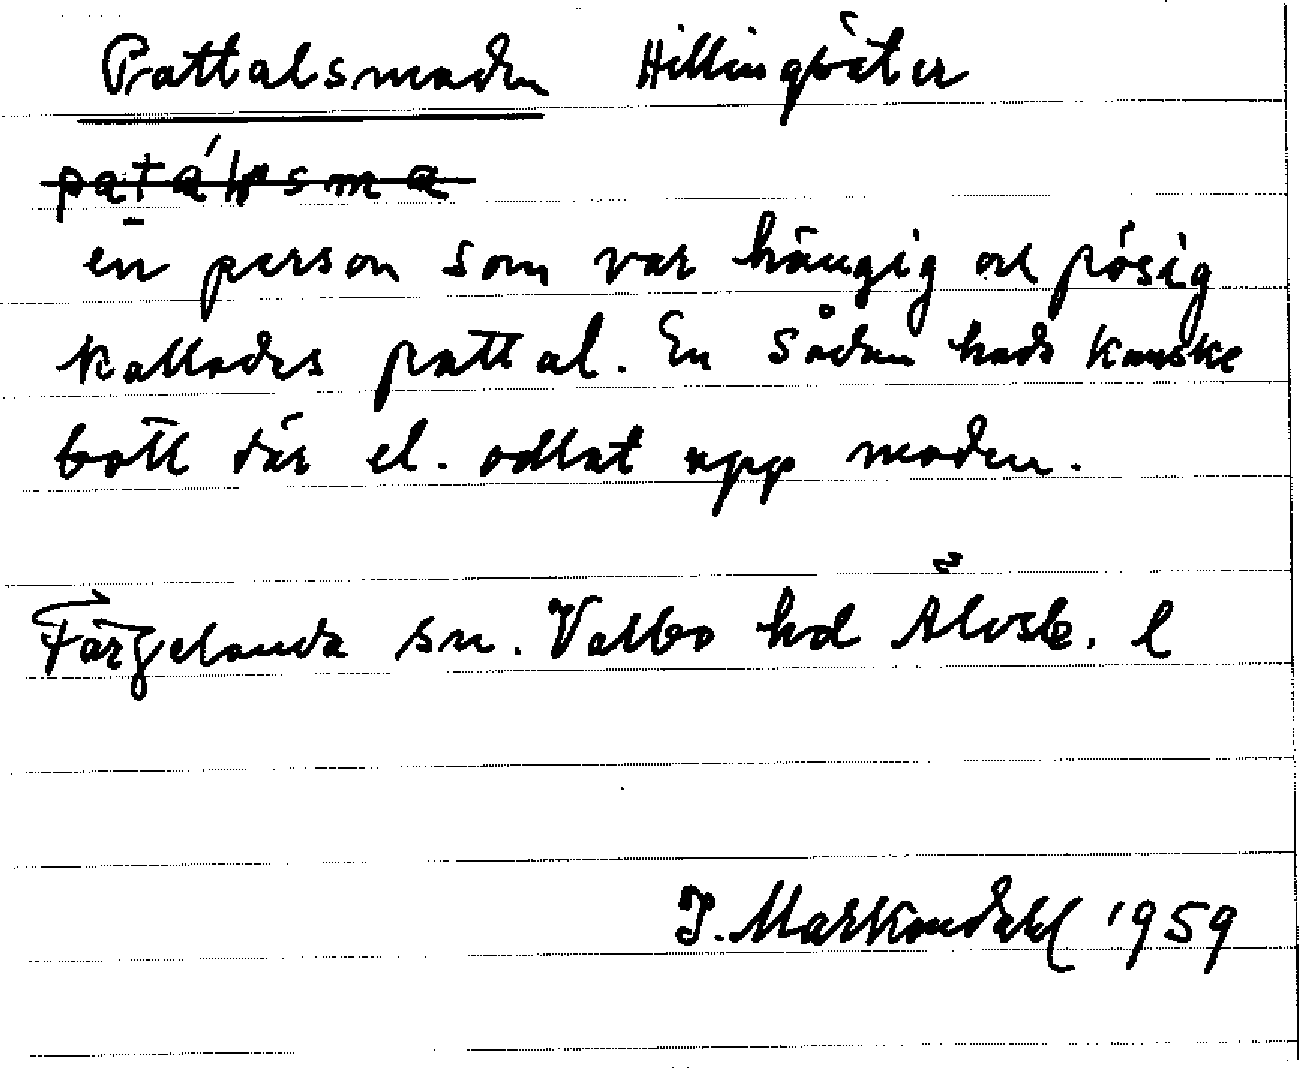 Pattalsmaden Hillingsäter
en person som var hängig och påsig
kallades pattal. En sådan hade kanske
bott där el. odlat upp maden.
Färgelanda sn. Valbo hd Älvsb. l
J. Markendahl 1959